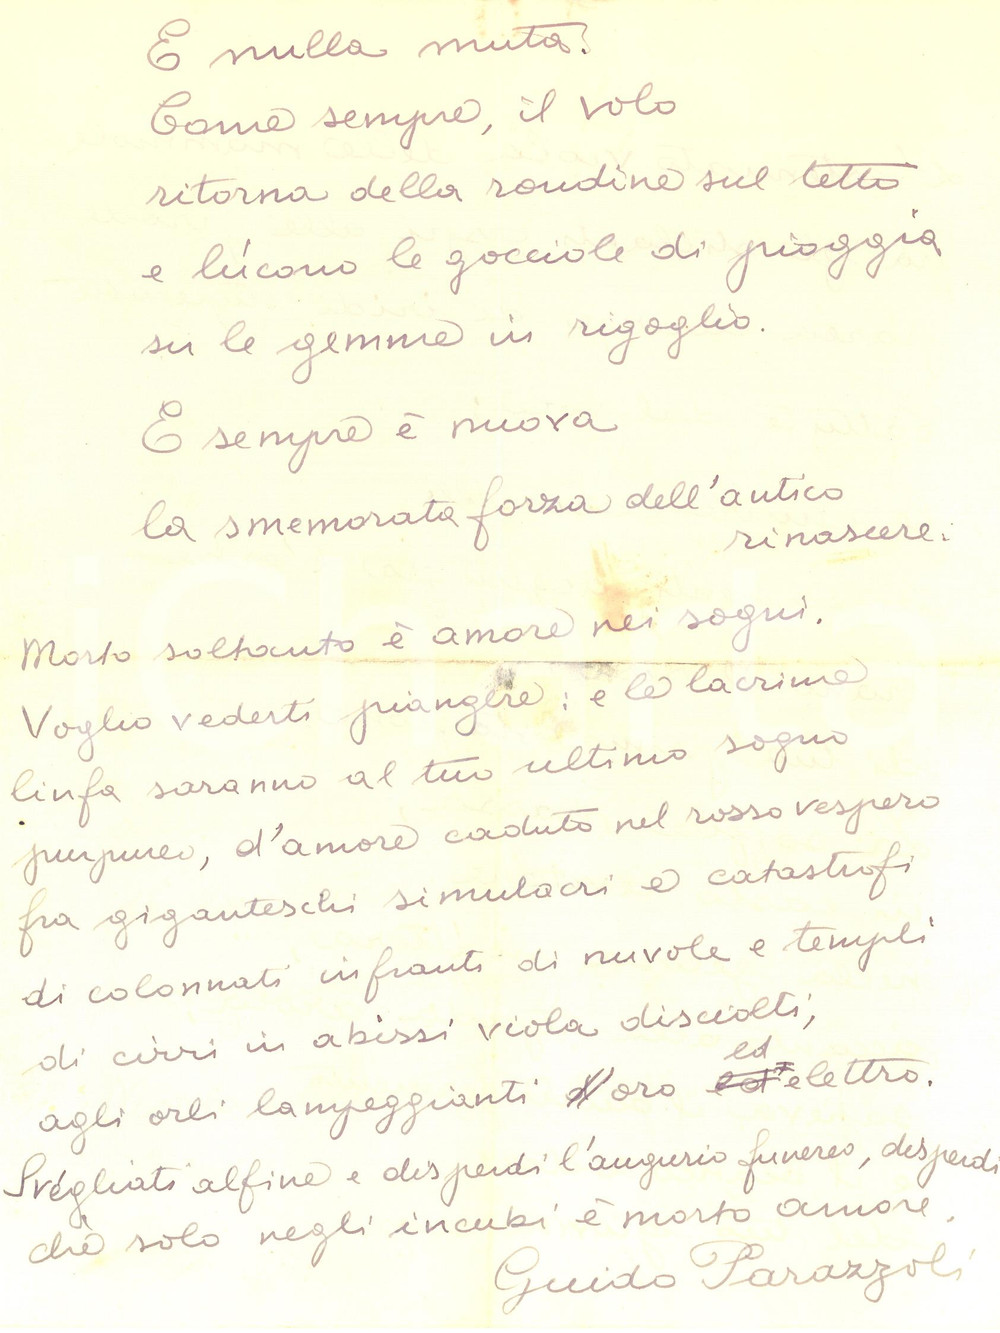 E nulla muta.
Come sempre, il volo
ritorna della rondine sul tetto
e lúcono le gocciole di pioggia
su le gemme in rigoglio.
E sempre è nuova
la smemorata forza dell'antico
rinascere.
Morto soltanto è amore nei sogni.
Voglio vederti piangere: e le lacrime
linfa saranno al tuo ultimo sogno
purpureo, d'amore caduto nel rosso vespero
fra giganteschi simulacri e catastrofi
di colonnati infranti di nuvole e templi
di cirri in abissi viola disciolti,
ed
agli orli lampeggianti oro elettro.
Svégliati alfine e disperdi l'augurio funereo, disperdi
chè solo negli incubi è morto amore.
Guido Parazzoli